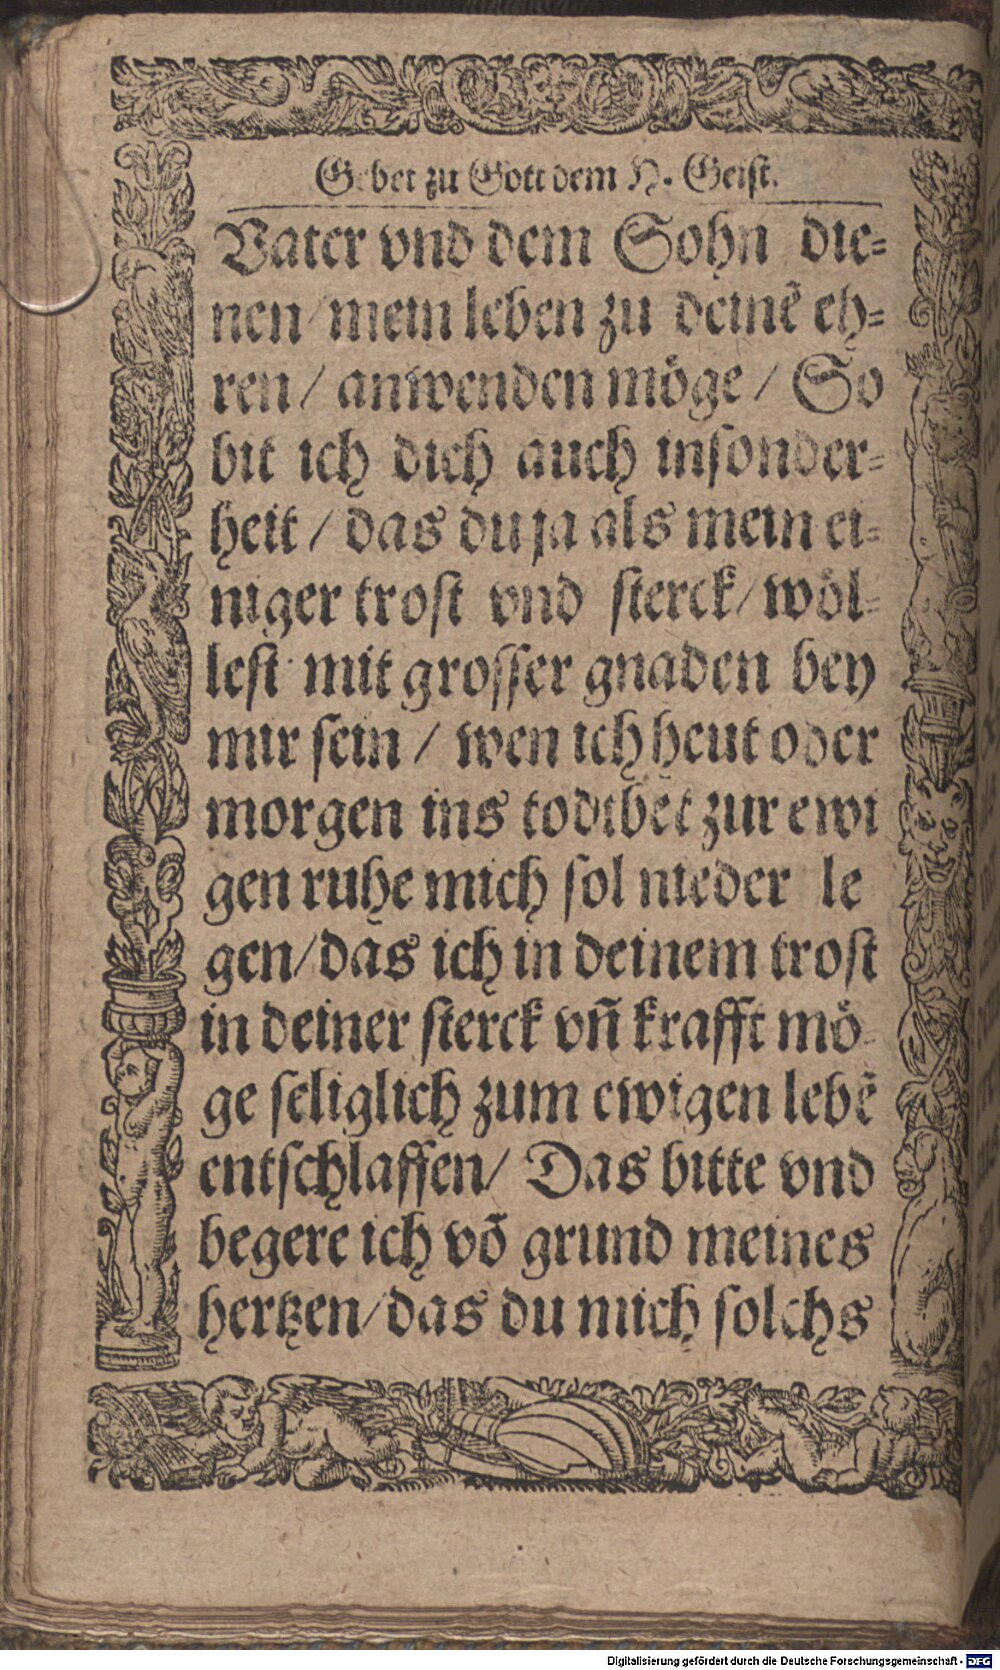 Gebet zu Gott dem H. Geist.
Vater vnd dem Sohn die=
nen / mein leben zu deinē eh=
ren / anwenden möge / So
bit ich dich auch insonder=
heit / das du ja als mein ei=
niger trost vnd sterck / wöl=
lest mit grosser gnaden bey
mir sein / wen ich heut oder
morgen ins todtbet zur ewi
gen ruhe mich sol nieder le
gen / das ich in deinem trost
in deiner sterck vñ krafft mö
ge seliglich zum ewigen lebē
entschlaffen / Das bitte vnd
begere ich vō grund meines
hertzen / das du mich solchs
Digitalisierung gefördert durch die Deutsche Forschungsgemeinschaft - DFG